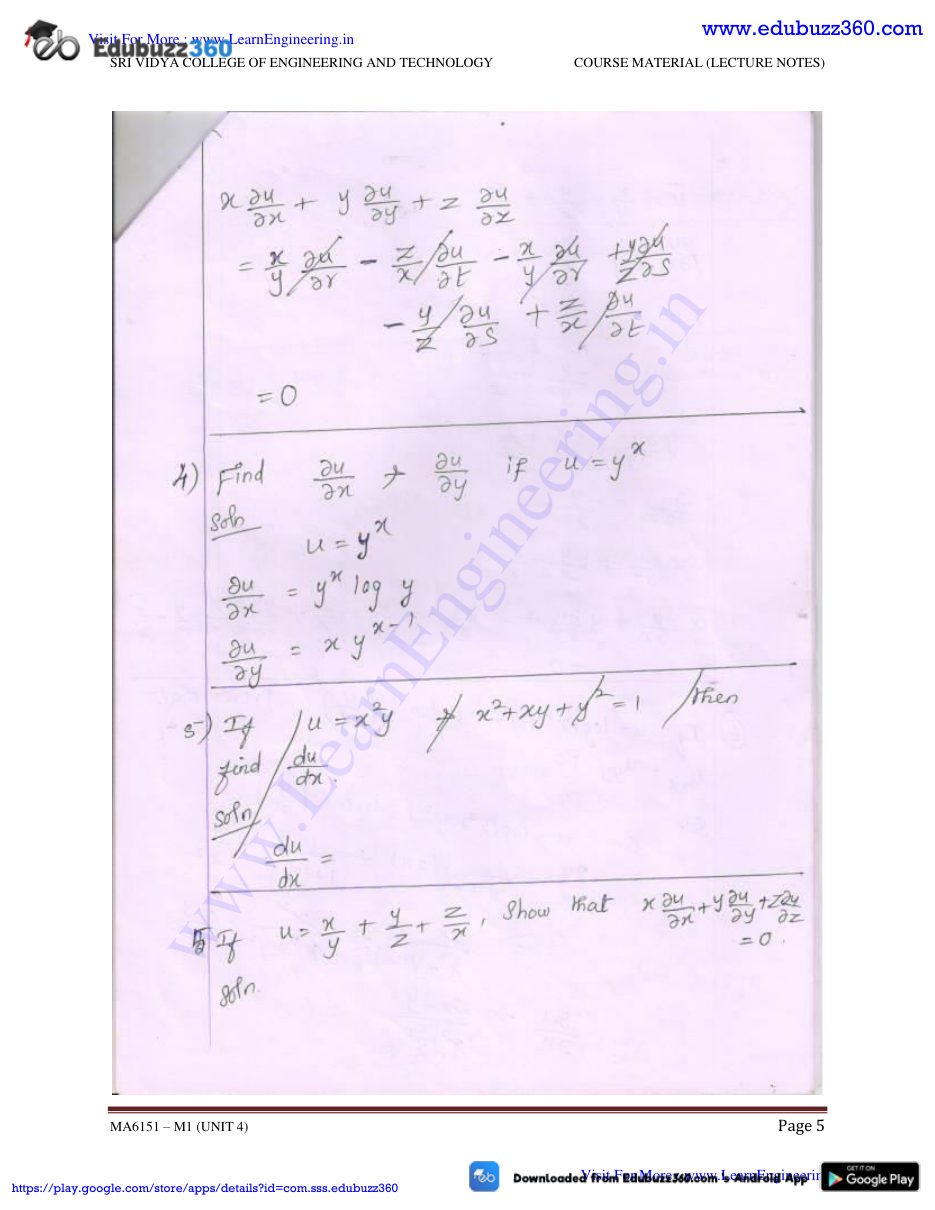 www.edubuzz360.com
Visit For More : www.LearnEngineering.in
Edubuzz360
SRI VIDYA COLLEGE OF ENGINEERING AND TECHNOLOGY COURSE MATERIAL (LECTURE NOTES)
x ∂u/∂x + y ∂u/∂y + z ∂u/∂z
= x/y ∂u/∂r - z/x ∂u/∂t - x/y ∂u/∂r + y/z ∂u/∂s
- y/z ∂u/∂s + z/x ∂u/∂t
= 0
4) Find ∂u/∂x & ∂u/∂y if u = y^x
Soln
u = y^x
∂u/∂x = y^x log y
∂u/∂y = x y^(x-1)
5) If u = x²y & x²+xy+y² = 1 then
find du/dx.
soln
du/dx =
5 If u = x/y + y/z + z/x, show that x ∂u/∂x + y ∂u/∂y + z ∂u/∂z
= 0.
soln.
www.LearnEngineering.in
MA6151 – M1 (UNIT 4) Page 5
https://play.google.com/store/apps/details?id=com.sss.edubuzz360
Downloaded from EduBuzz360.com 's Android App
Visit For More : www.LearnEngineerin
GET IT ON
Google Play